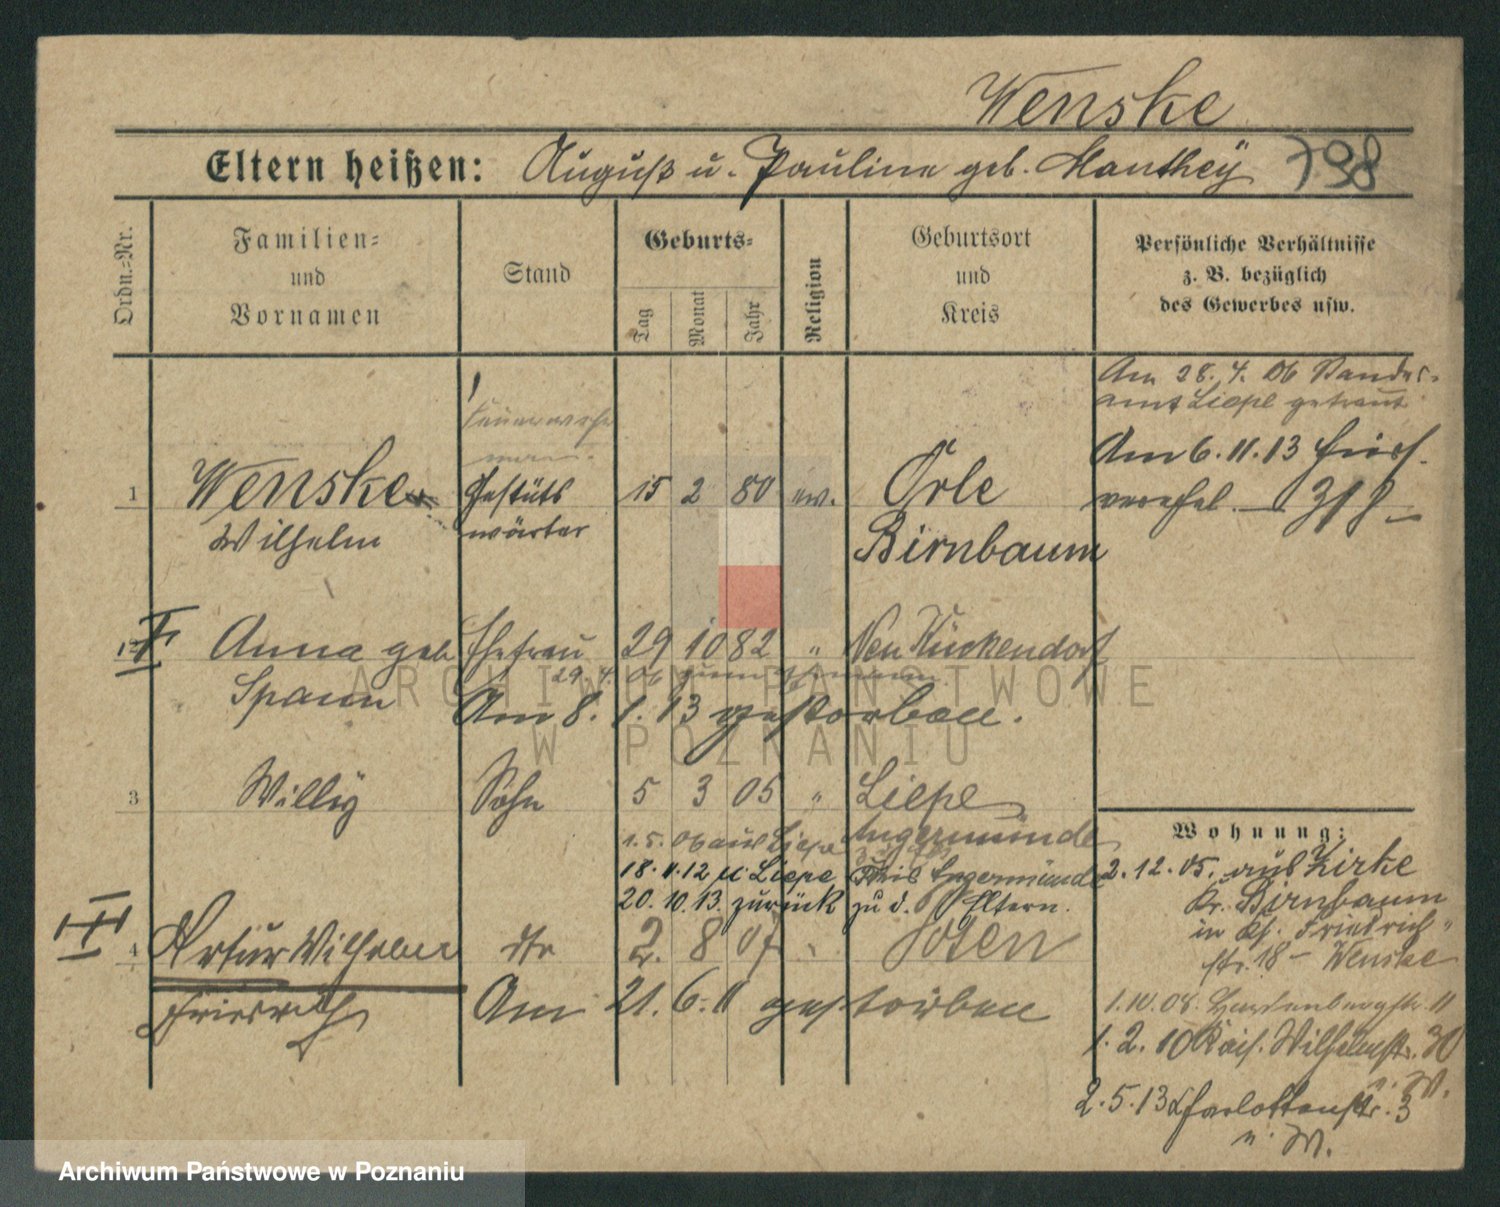 Wenske
Eltern heißen: August u. Pauline geb. Manthey 798
Ordn.-Nr.
Familien-
und
Vornamen
Stand
Geburts-
Tag
Monat
Jahr
Religion
Geburtsort
und
Kreis
Persönliche Verhältnisse
z. B. bezüglich
des Gewerbes usw.
Am 28. 4. 06 Standes-
amt Liepe getraut
Am 6. 11. 13
1 Wenske Gestüts 15 2 80 ev. Orle
Wilhelm wärter Birnbaum
II Anna geb. Ehefrau 29 10 82 " Neu Künkendorf
29. 4. 06
Spann Am 8. 1. 13 gestorben.
3 Willy Sohn 5 3 05 " Liepe
1. 5. 06 aus Liepe Angermünde
18. 11. 12 n. Liepe Kreis Angermünde
20. 10. 13. zurück zu d. Eltern.
III
4 Artur Wilhelm dto 2. 8 07 " Posen
Friedrich Am 21. 6. 11 gestorben
Wohnung:
2. 12. 05. aus Zirke
Kr. Birnbaum
in Friedrich
str. 18 - Wenske
1. 10. 08. Hardenbergstr. 11
1. 2. 10 Kais. Wilhelmstr. 30
n. W.
2. 5. 13 Charlottenstr. 3
n. W.
ARCHIWUM PAŃSTWOWE
W POZNANIU
Archiwum Państwowe w Poznaniu